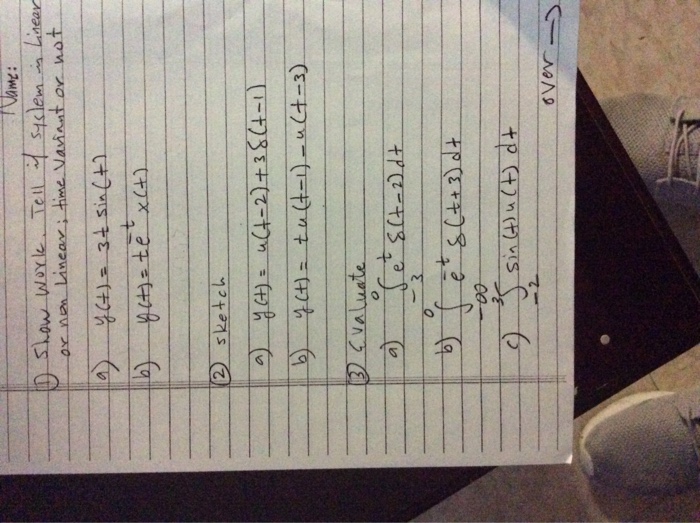 Name:
① Show work. Tell if system is Linear
or non Linear; time Variant or not
a) y(t) = 3t sin(t)
b) y(t) = te^-t x(t)
② sketch
a) y(t) = u(t-2) + 3δ(t-1)
b) y(t) = tu(t-1) - u(t-3)
③ Evaluate
a) ∫_-3^0 e^t δ(t-2) dt
b) ∫_-∞^0 e^-t δ(t+3) dt
c) ∫_-2^3 sin(t) u(t) dt
over →